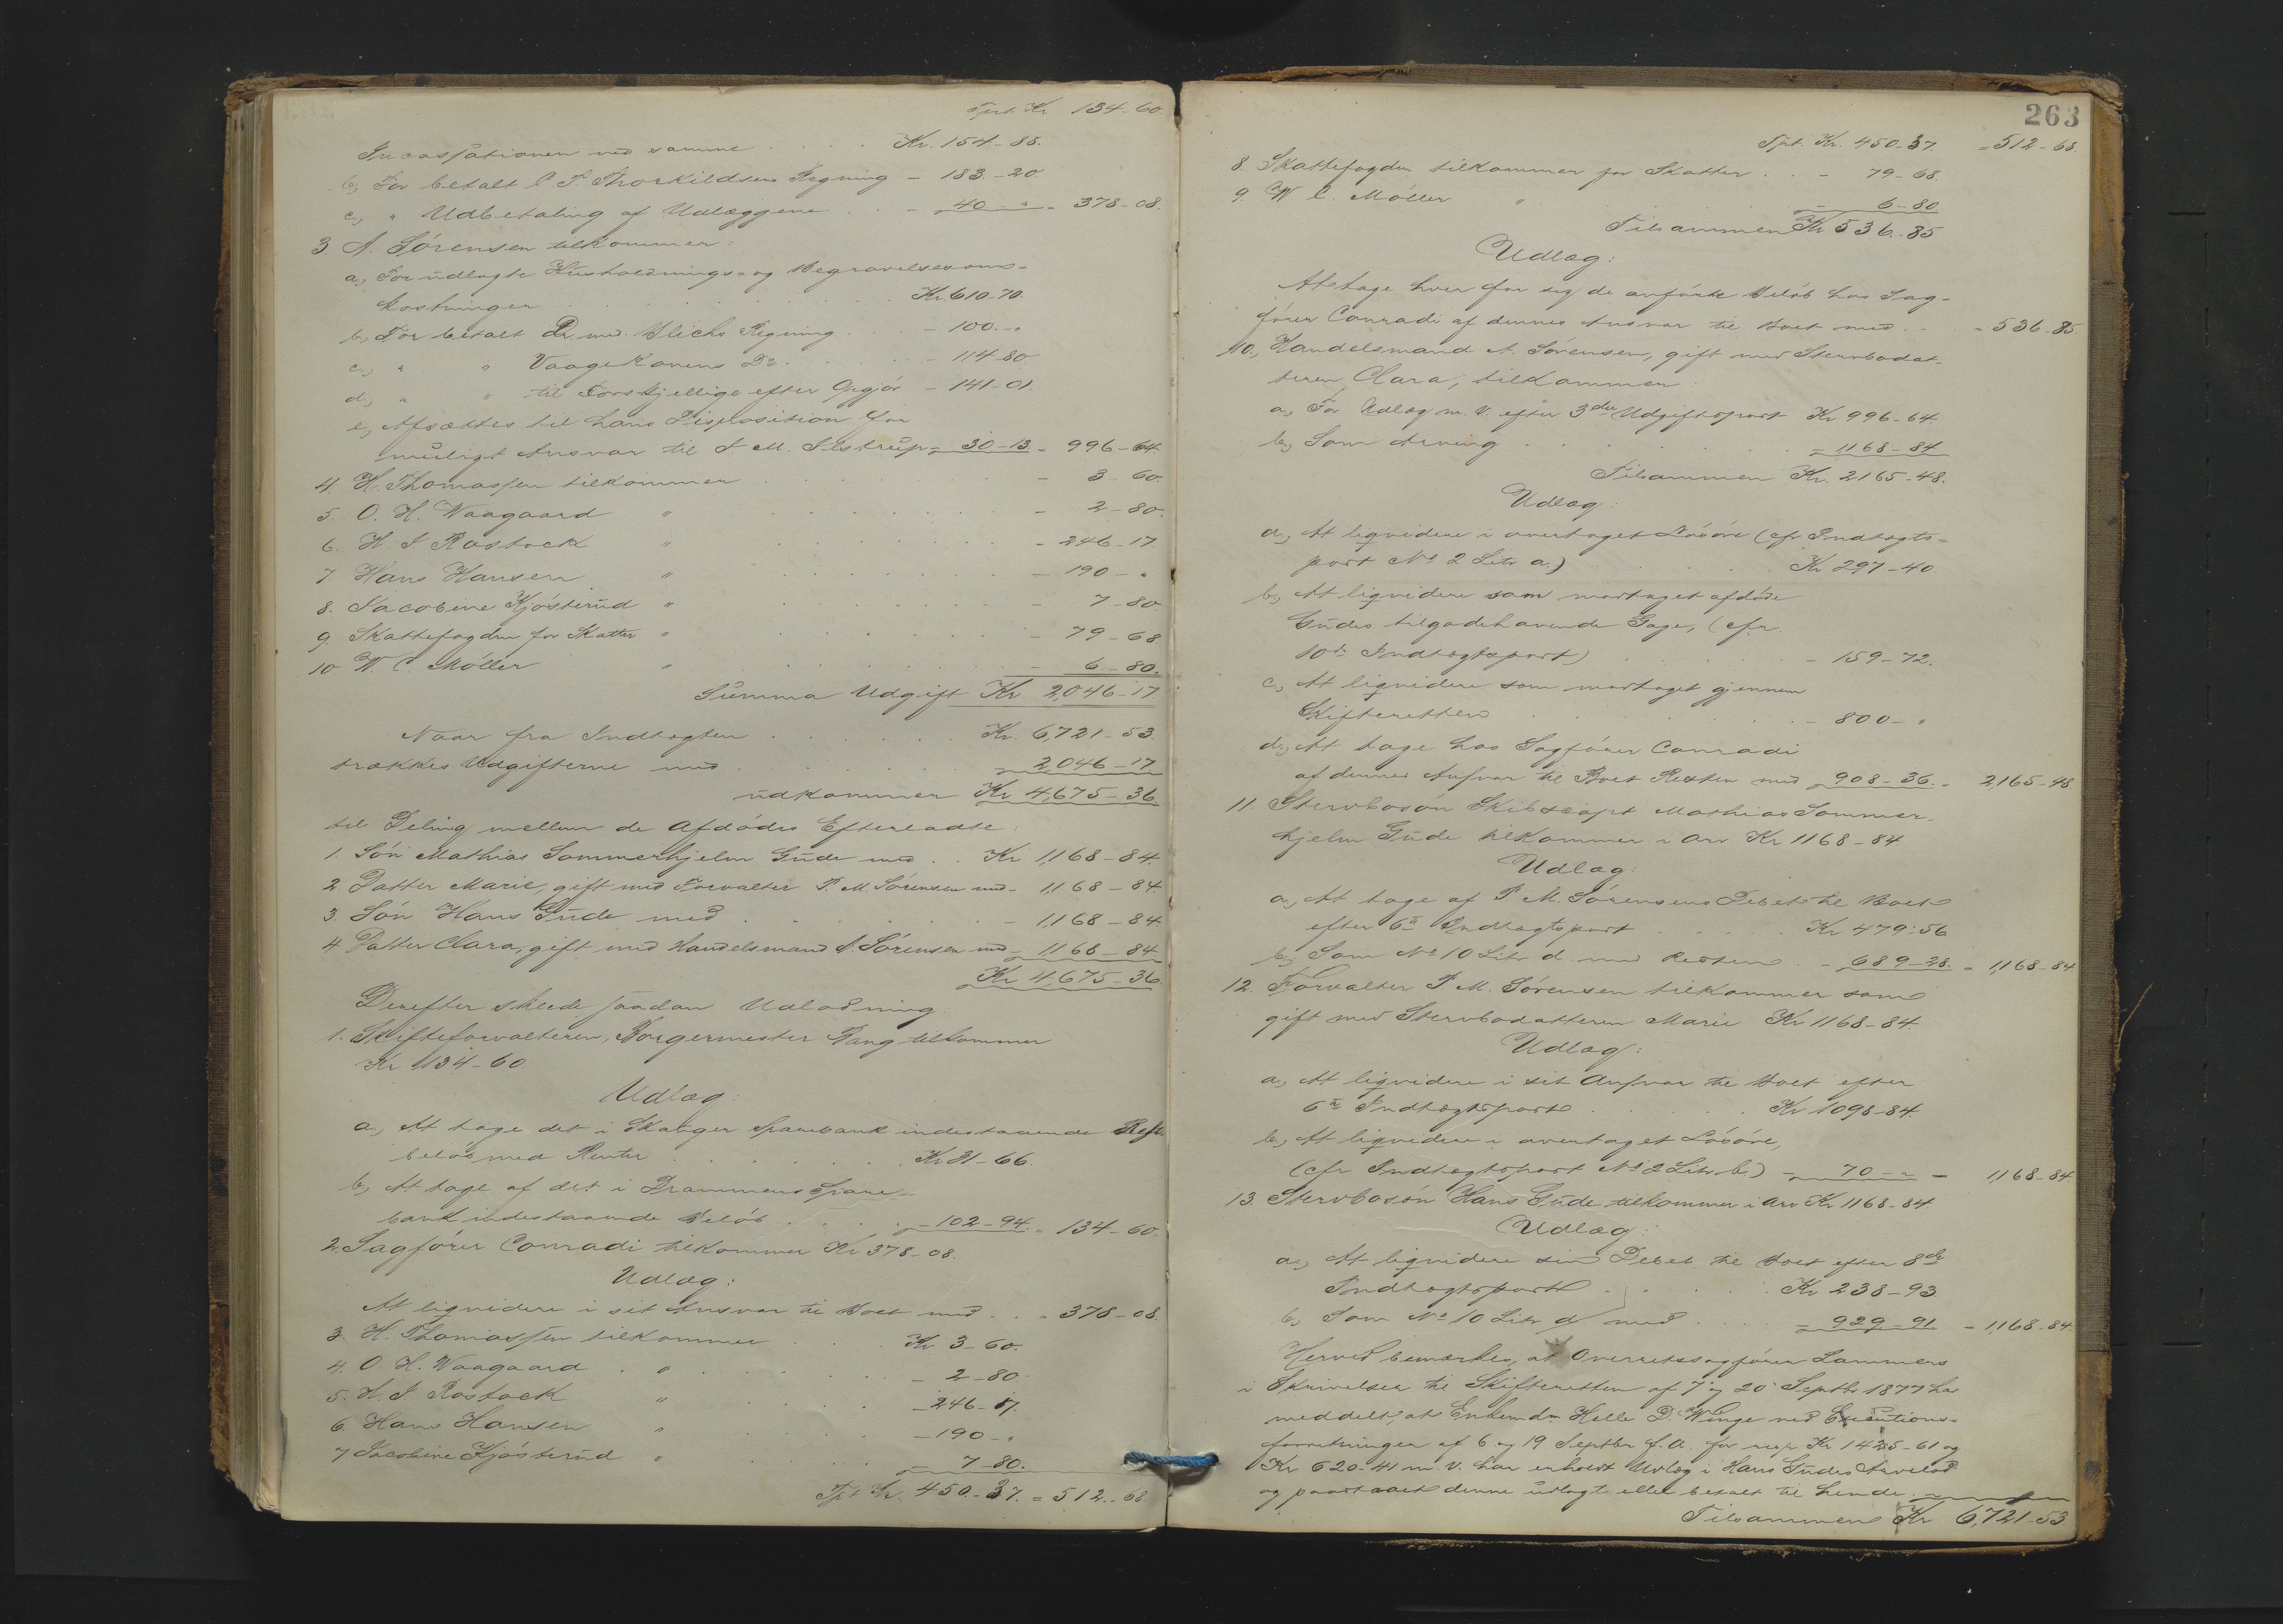 Tprt. Kr 134-60.
Incassationen ved samme . . . . Kr. 154-88.
b, For betalt C. T. Thorkildsens Regning - 183-20
c, " Udbetaling af Udlæggene . . - 40-" - 378-08.
3 A. Sørensen tilkommer:
a, For udlagte Husholdnings- og Begravelsesom-
kostninger . . . . Kr. 610-70.
b, For betalt Dr. med. Blichs Regning . . - 100-"
c, " " Vaagekonens Do . . - 114-80
d, " " til Forskjellige efter Opgjør - 141-01.
e, Afsættes til hans Disposition for
muligt Ansvar til S. M. Alstrup - 30-13 - 996-64.
4. H. Thomassen tilkommer . . . - 3-60.
5. O. H. Waagaard " . . . - 2-80.
6. H. J. Rostock " . . . - 246-17
7. Hans Hansen " . . . - 190-"
8. Jacobine Kjøsterud " . . . - 7-80.
9. Skattefogden for Skatter " . . . - 79-68
10 W. C. Møller " . . . - 6-80.
Summa Udgift Kr. 2,046-17
Naar fra Indtægten . . . . Kr. 6,721-53.
trækkes Udgifterne med . . . . - 2,046-17
udkommer Kr. 4,675-36.
til Deling mellem de Afdødes Efterladte:
1. Søn Mathias Sommerhjelm Gude med . . Kr 1,168-84.
2. Datter Marie, gift med Forvalter P. M. Sørensen med - 1168-84.
3. Søn Hans Gude med . . . . - 1,168-84
4 Datter Clara, gift med Handelsmand A. Sørensen med - 1168-84
Kr 4,675-36.
Derefter skeede saadan Udlodning
1. Skifteforvalteren, Borgermester Bang tilkommer
Kr 134-60
Udlæg:
a, At tage det i Skauger Sparebank indestaaende Rest-
beløb med Renter . . . . Kr 31-66.
b, At tage af det i Drammens Spare-
bank indestaaende Beløb . . . . - 102-94. - 134-60.
2. Sagfører Conradi tilkommer Kr 378-08.
Udlæg:
At liqvidere i sit Ansvar til Boet med . . - 378-08.
3. H. Thomassen tilkommer . . Kr 3-60.
4. O. H. Waagaard . " . . . - 2-80.
5. H. J. Rostock " - 246-17.
6 Hans Hansen " . . . - 190-"
7 Jacobine Kjøsterud " . . . - 7-80.
Tprt Kr. 450-37. = 512-68.
263
Tprt. Kr. 450-37. = 512-68.
8. Skattefogden tilkommer for Skatter . . - 79-68.
9. W. C. Møller " . . - 6-80
Tilsammen Kr 536-85
Udlæg:
At tage hver for sig de anførte Beløb hos Sag-
fører Conradi af dennes Ansvar til Boet med . . - 536-85
10., Handelsmand A. Sørensen, gift med Stervbodat-
teren Clara, tilkommer
a, For Udlæg m. V. efter 3die Udgiftspost Kr 996-64.
b, Som Arving . . . . - 1168-84
Tilsammen Kr. 2165-48.
Udlæg:
a, At liqvidere i overtaget Løsøre (cfr Indtægts-
post No 2 Litr a.) . . . . Kr 297-40.
b, At liqvidere som modtaget afdøde
Gudes tilgodehavende Gage, (cfr.
10de Indtægtspost) . . . . - 159-72.
c, At liqvidere som modtaget gjennem
Skifteretten . . . . - 800-"
d., At tage hos Sagfører Conradi
af dennes Ansvar til Boet Resten med - 908-36. - 2,165-48
11. Stervbosøn Skibscapt Mathias Sommer-
hjelm Gude tilkommer i Arv Kr 1168-84
Udlæg:
a, At tage af P. M. Sørensens Debet til Boet
efter 6te Indtægtspost . . . . Kr 479-56
b, Som No 10 Litr d. med Resten . - 689-28. - 1,168-84
12. Forvalter P. M. Sørensen tilkommer som
gift med Stervbodatteren Marie Kr 1168-84
Udlæg:
a, At liqvidere i sit Ansvar til Boet efter
6te Indtægtspost . . . . Kr 1098-84.
b, At liqvidere i overtaget Løsøre,
(cfr Indtægtspost No 2 Litr b.) - 70-" - 1168-84.
13. Stervbosøn Hans Gude tilkommer i Arv Kr 1168-84.
Udlæg:
a, At liqvidere sin Debet til Boet efter 8de
Indtægtspost . . . . Kr 238-93
b, Som No 10 Litr d med . . . - 929-91 - 1,168-84.
Herved bemærkes, at Overretssagfører Lammers
i Skrivelser til Skifteretten af 7 og 20 Septbr 1877 har
meddelt, at Enkemdm Helle D. Winge ved Executions-
forretninger af 6 og 19 Septbr f. A. for resp Kr 1425-61 og
Kr 620-41 m. V. har erholdt Udlæg i Hans Gudes Arvelod
og paastaaet denne udlagt eller betalt til hende.
Tilsammen Kr 6,721-53